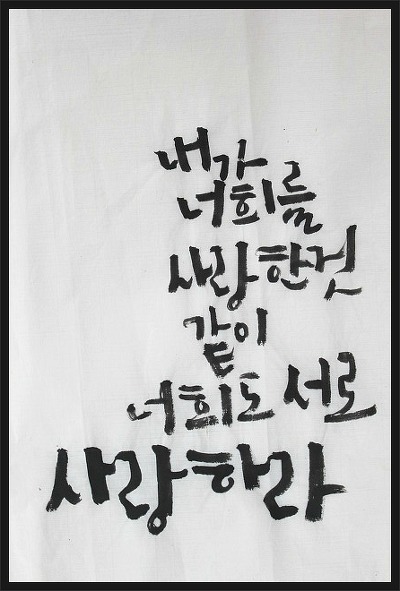 내가
너희를
사랑한것
같이
너희도 서로
사랑하라